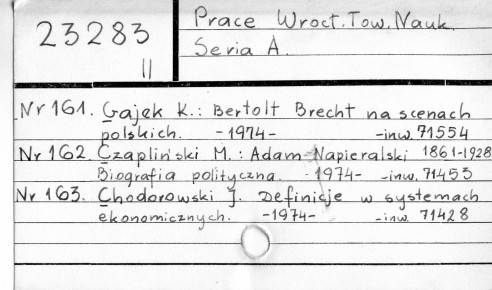 23283
II
Prace Wrocł. Tow. Nauk.
Seria A.
Nr 161. Gajek K.: Bertolt Brecht na scenach
polskich. -1974- -inw. 71554
Nr 162. Czapliński M.: Adam Napieralski 1861-1928
Biografia polityczna. -1974- -inw. 71453
Nr 163. Chodorowski J. Definicje w systemach
ekonomicznych. -1974- -inw. 71428